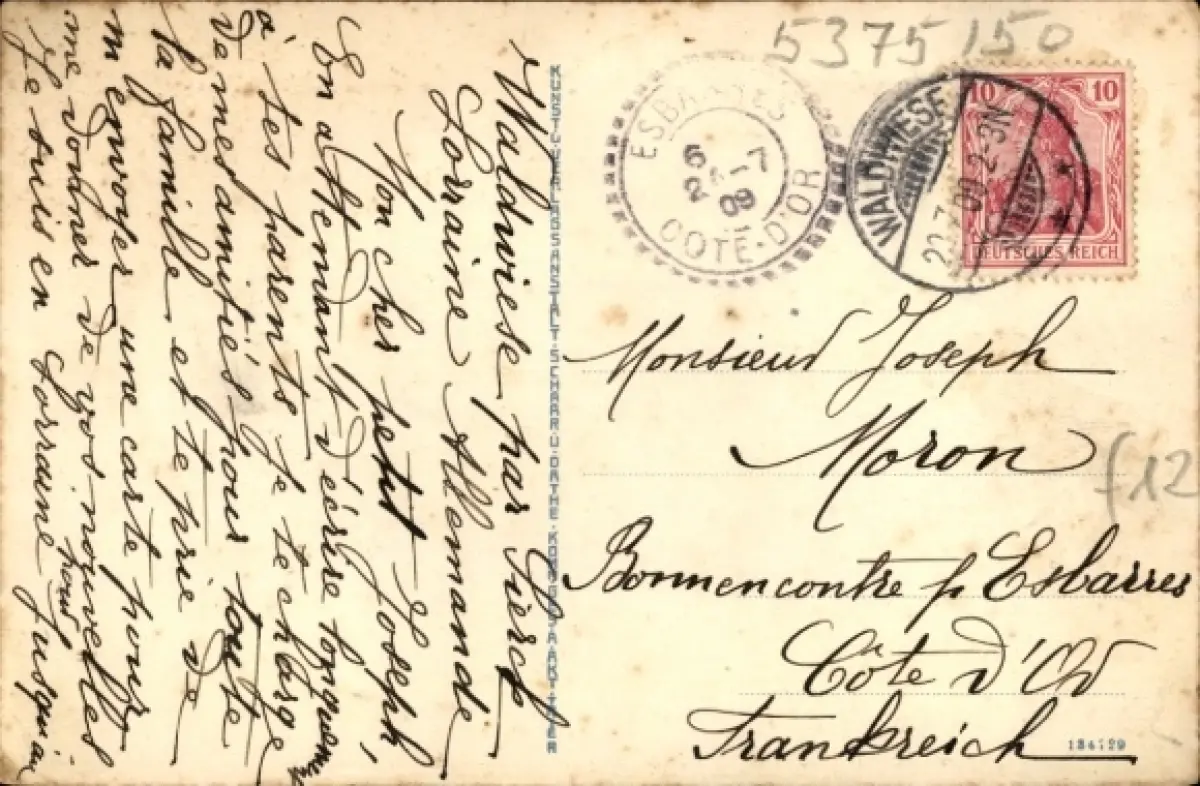 5375 150
ESBARRES
6 - 7
2 - 09
COTE-D'OR
WALDWIESE
2-3N
10 10
DEUTSCHES REICH
Waldwiese par Sierck
Lorraine Allemande
Mon cher petit Joseph,
En attendant d'écrire longuement
à tes parents je te charge
de mes amitiés pour toute
la famille et te prie de
m'envoyer une carte pour
me donner de vos nouvelles
Je suis en Lorraine pour jusqu'au
Monsieur Joseph
Moron
Bonnencontre p Esbarres
Côte d'Or
Frankreich
f12
134729